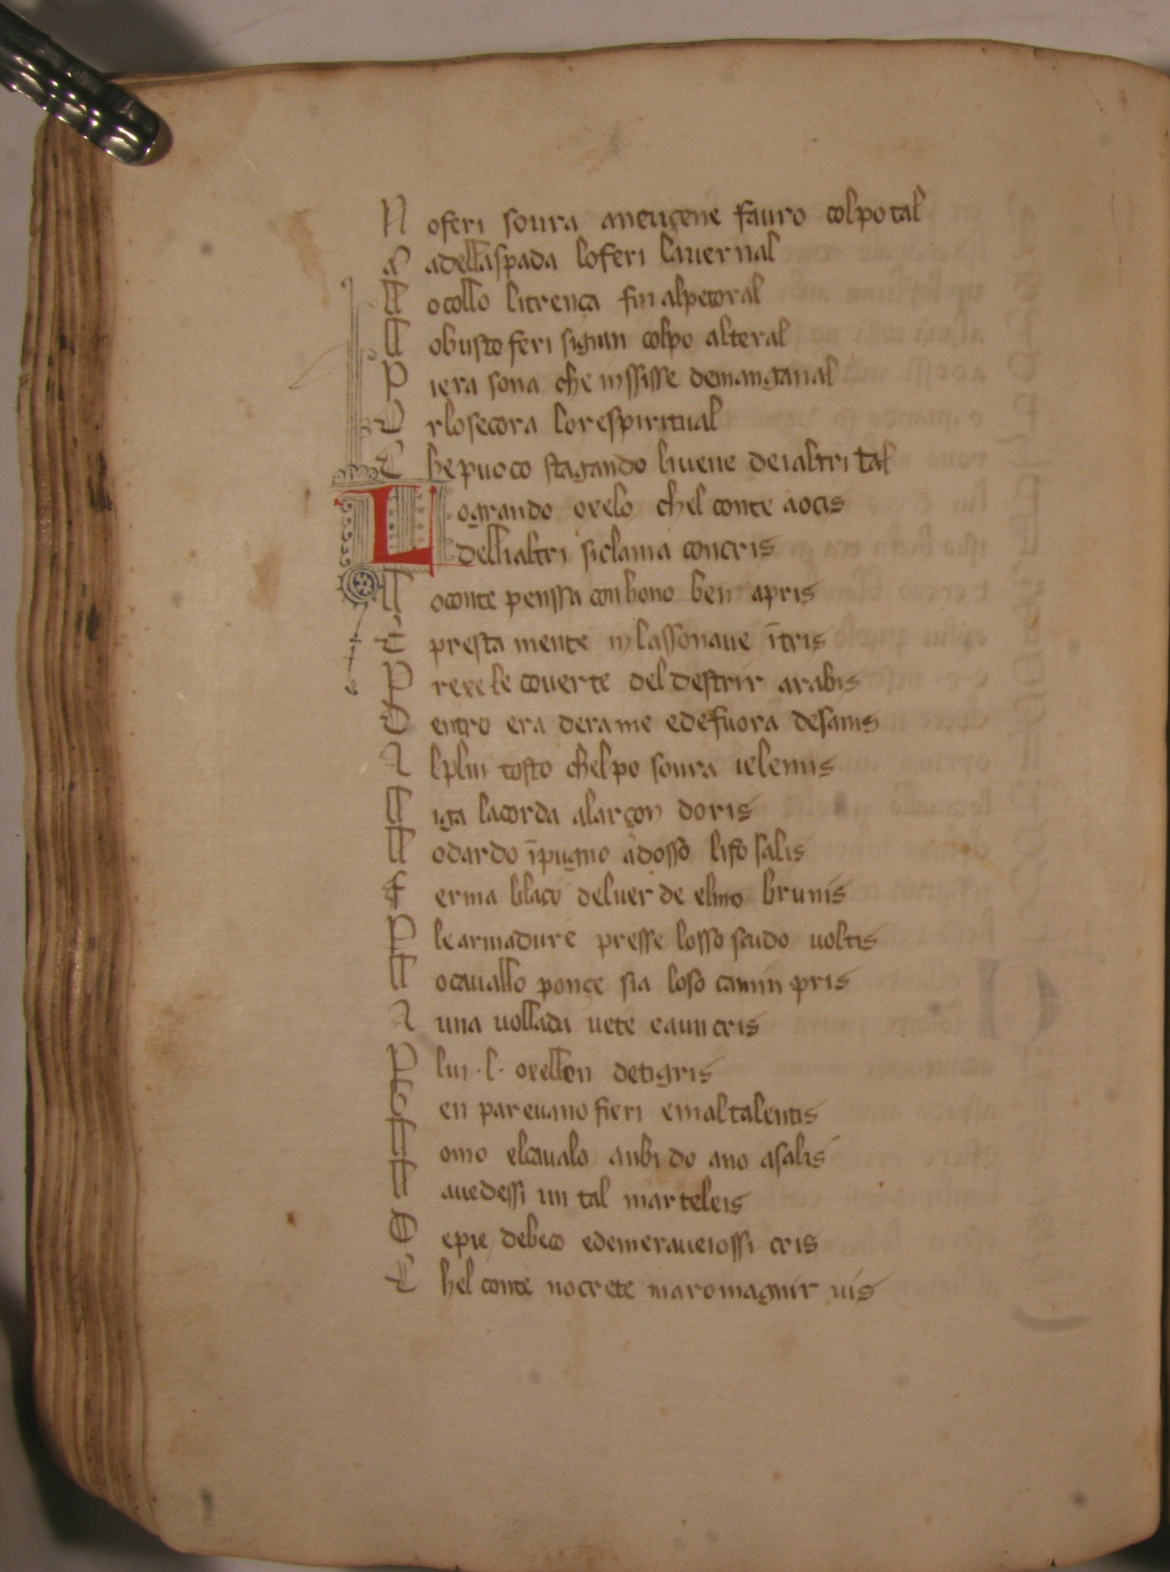 N oferi soura aneuçene fauro colpo tal
a adellaspada loferi lauernal
ll ocollo litrença fin alpetoral
ll obusto feri signan colpo alteral
P iera sona che inssisse demanganal
O rlosecora lorespiritual
C hepuoco stagando liuene deialtri tal
L ogrando orelo chel conte aocis
dellialtri siclama concris
ll oconte penssa con bono ben apris
E presta mente in lassonaue ītris
P rexe le couerte del destrir arabis
D entro era derame edefuora desamis
A lplui tosto chelpo soura ielemis
ll iga lacorda alarçon doris
ll odardo īpugno adosso lifo salis
f erma blaço deluer de elmo brunis
P learmadure presse losso scudo uoltis
ll ocauallo ponçe sia loso camin pris
A una uollada uete eauncris
P lui ·l· orellon detigris
B en pareuano fieri emaltalentis
ll omo elcaualo anbi do ano asalis
ll auedessi un tal marteleis
D epie debeco edemeraueiossi cris
C hel conte nocrete maromagnir uis